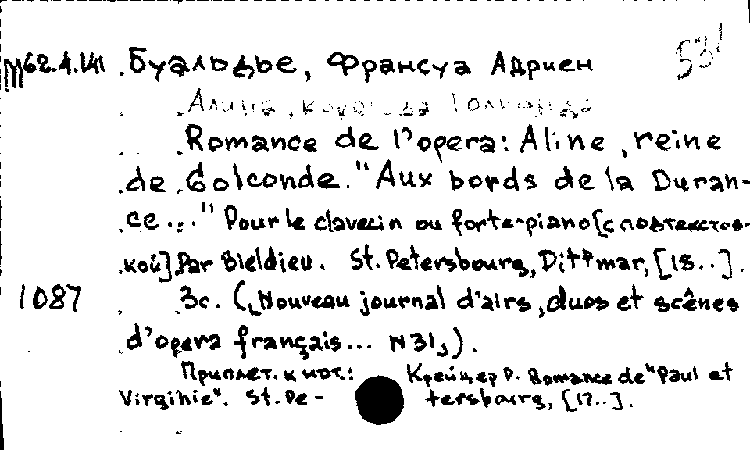 М62.4.141 Буальдье, Франсуа Адриен 531
Алина, королева Голконды
Romance de l'opera: Aline, reine
de Golconde. "Aux bords de la Duran-
ce..." Pour le clavecin ou forte-piano [с подтекстов-
кой] Par Bieldieu. St. Petersbourg, Dittmar, [18..].
1087 3с. („Nouveau journal d'airs, duos et scênes
d'opera français... N31„).
Приплет. к нот.: Крейцер Р. Romance de "Paul et
Virginie". St. Pe- tersbourg, [17..].